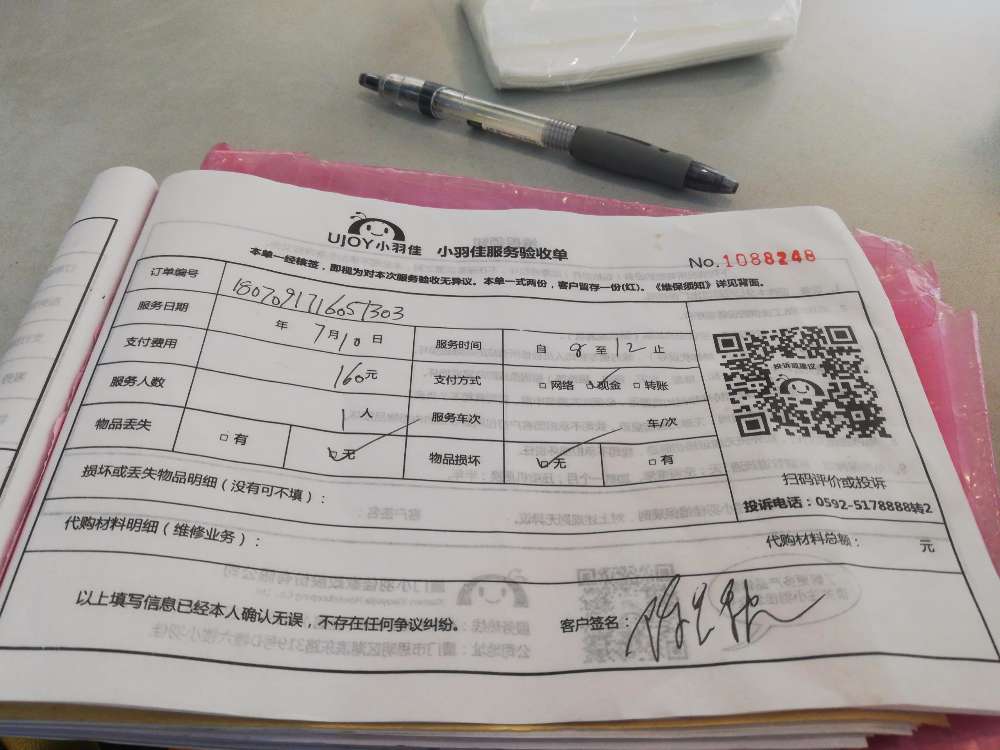 UJOY小羽佳 小羽佳服务验收单
No.1088248
本单一经核签，即视为对本次服务验收无异议。本单一式两份，客户留存一份(红)。《维保须知》详见背面。
订单编号 180709171605303
服务日期 年 7月10日 服务时间 自 8 至 12 止
支付费用 160元 支付方式 □网络 □现金 □转账
服务人数 1人 服务车次 车/次
物品丢失 □有 □无 物品损坏 □无 □有
损坏或丢失物品明细（没有可不填）：
投诉或建议
扫码评价或投诉
投诉电话：0592-5178888转2
代购材料明细（维修业务）： 代购材料总额： 元
以上填写信息已经本人确认无误，不存在任何争议纠纷。 客户签名：